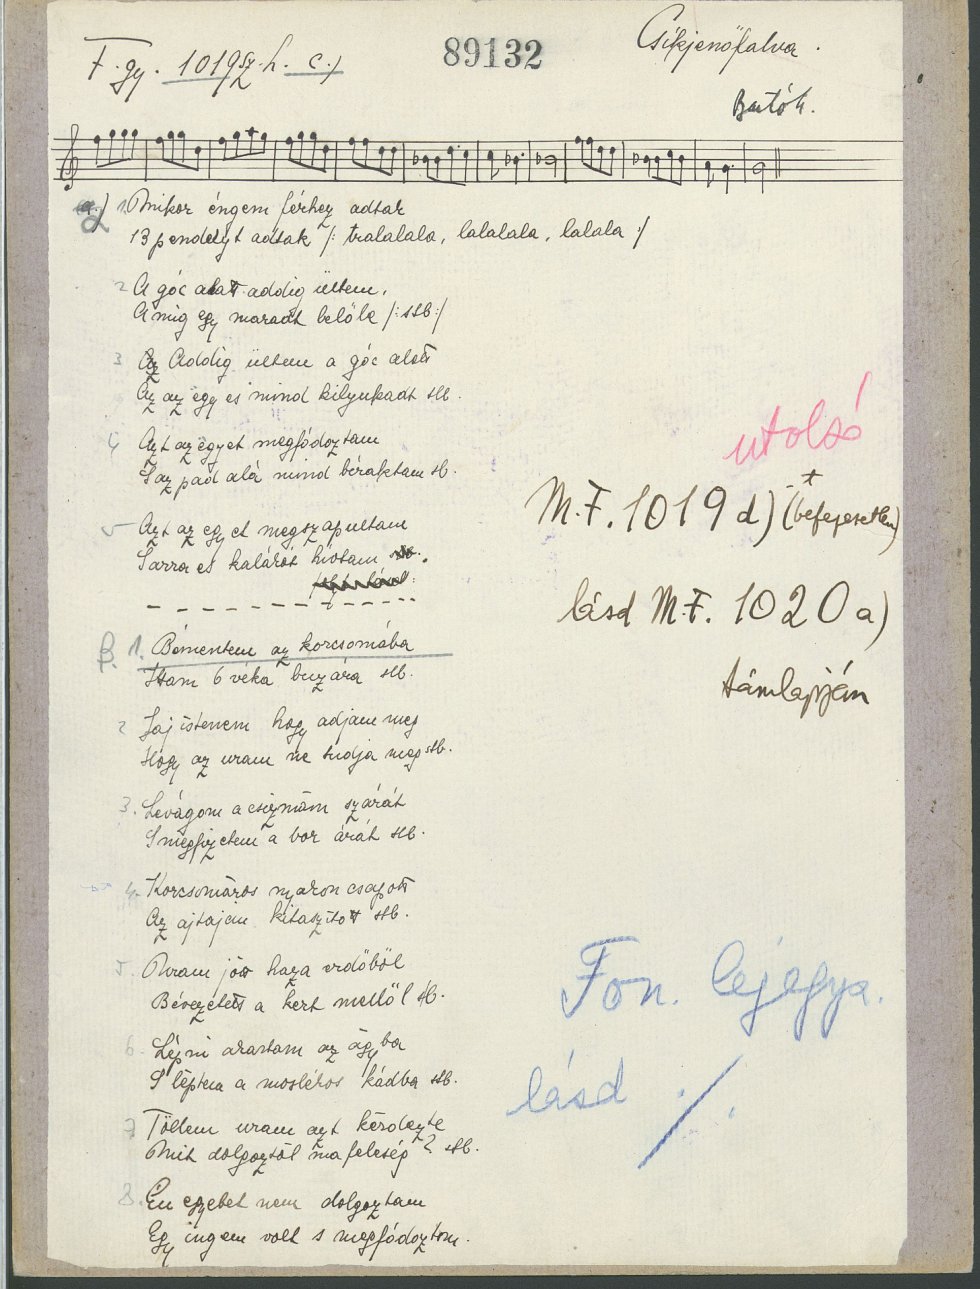 F. gy. 1019 sz. h. c.)
89132
Csíkjenőfalva.
Bartók.
a) 1. Mikor éngem férhez adtak
13 pendelyt adtak /: tralalala, lalalala, lalala :/
2 A góc alatt addig ültem,
Amig egy maradt belőle /: stb :/
3 Az Addig ültem a góc alatt
Az az ëgy es mind kilyukadt stb.
4 Azt az ëgyet megfódoztam
S az pad alá mind béraktam stb.
5 Azt az egyet megszapultam
Sarra es kalárót hívtam stb.
β. 1. Bémentem az korcsomába
Ittam 6 véka buzára stb.
2 Jaj istenem hogy adjam meg
Hogy az uram ne tudja meg stb.
3. Levágom a csizmám szárát
S megfizetem a bor árát stb.
4. Korcsomáros nyakon csapott
Az ajtaján kitaszított stb.
5. Uram jött haza erdőből
Bévezetett a kert mellől stb.
6. Lépni akartam az ágyba
S léptem a moslékos kádba stb.
7 Tőllem uram azt kérdezte
Mit dolgoztál ma feleség? stb.
8. Én egyebet nem dolgoztam
Egy ingem volt s megfódoztam.
utolsó
M.F. 1019 d) (befejezetlen)
lásd M.F. 1020 a)
támlapján
Fon. lejegyz.
lásd ./.